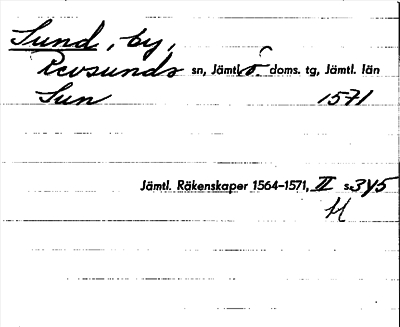 Sund, by,
Revsunds sn, Jämtl. ö. doms. tg, Jämtl. län
Sun 1571
Jämtl. Räkenskaper 1564-1571, II s. 345